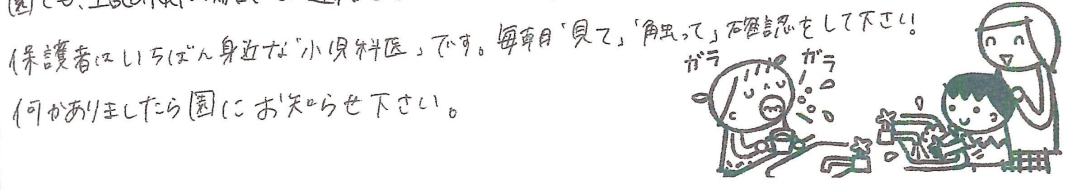 保護者はいちばん身近な「小児科医」です。毎朝「見て」「触って」確認をして下さい!
ガラ ガラ
何かありましたら園にお知らせ下さい。